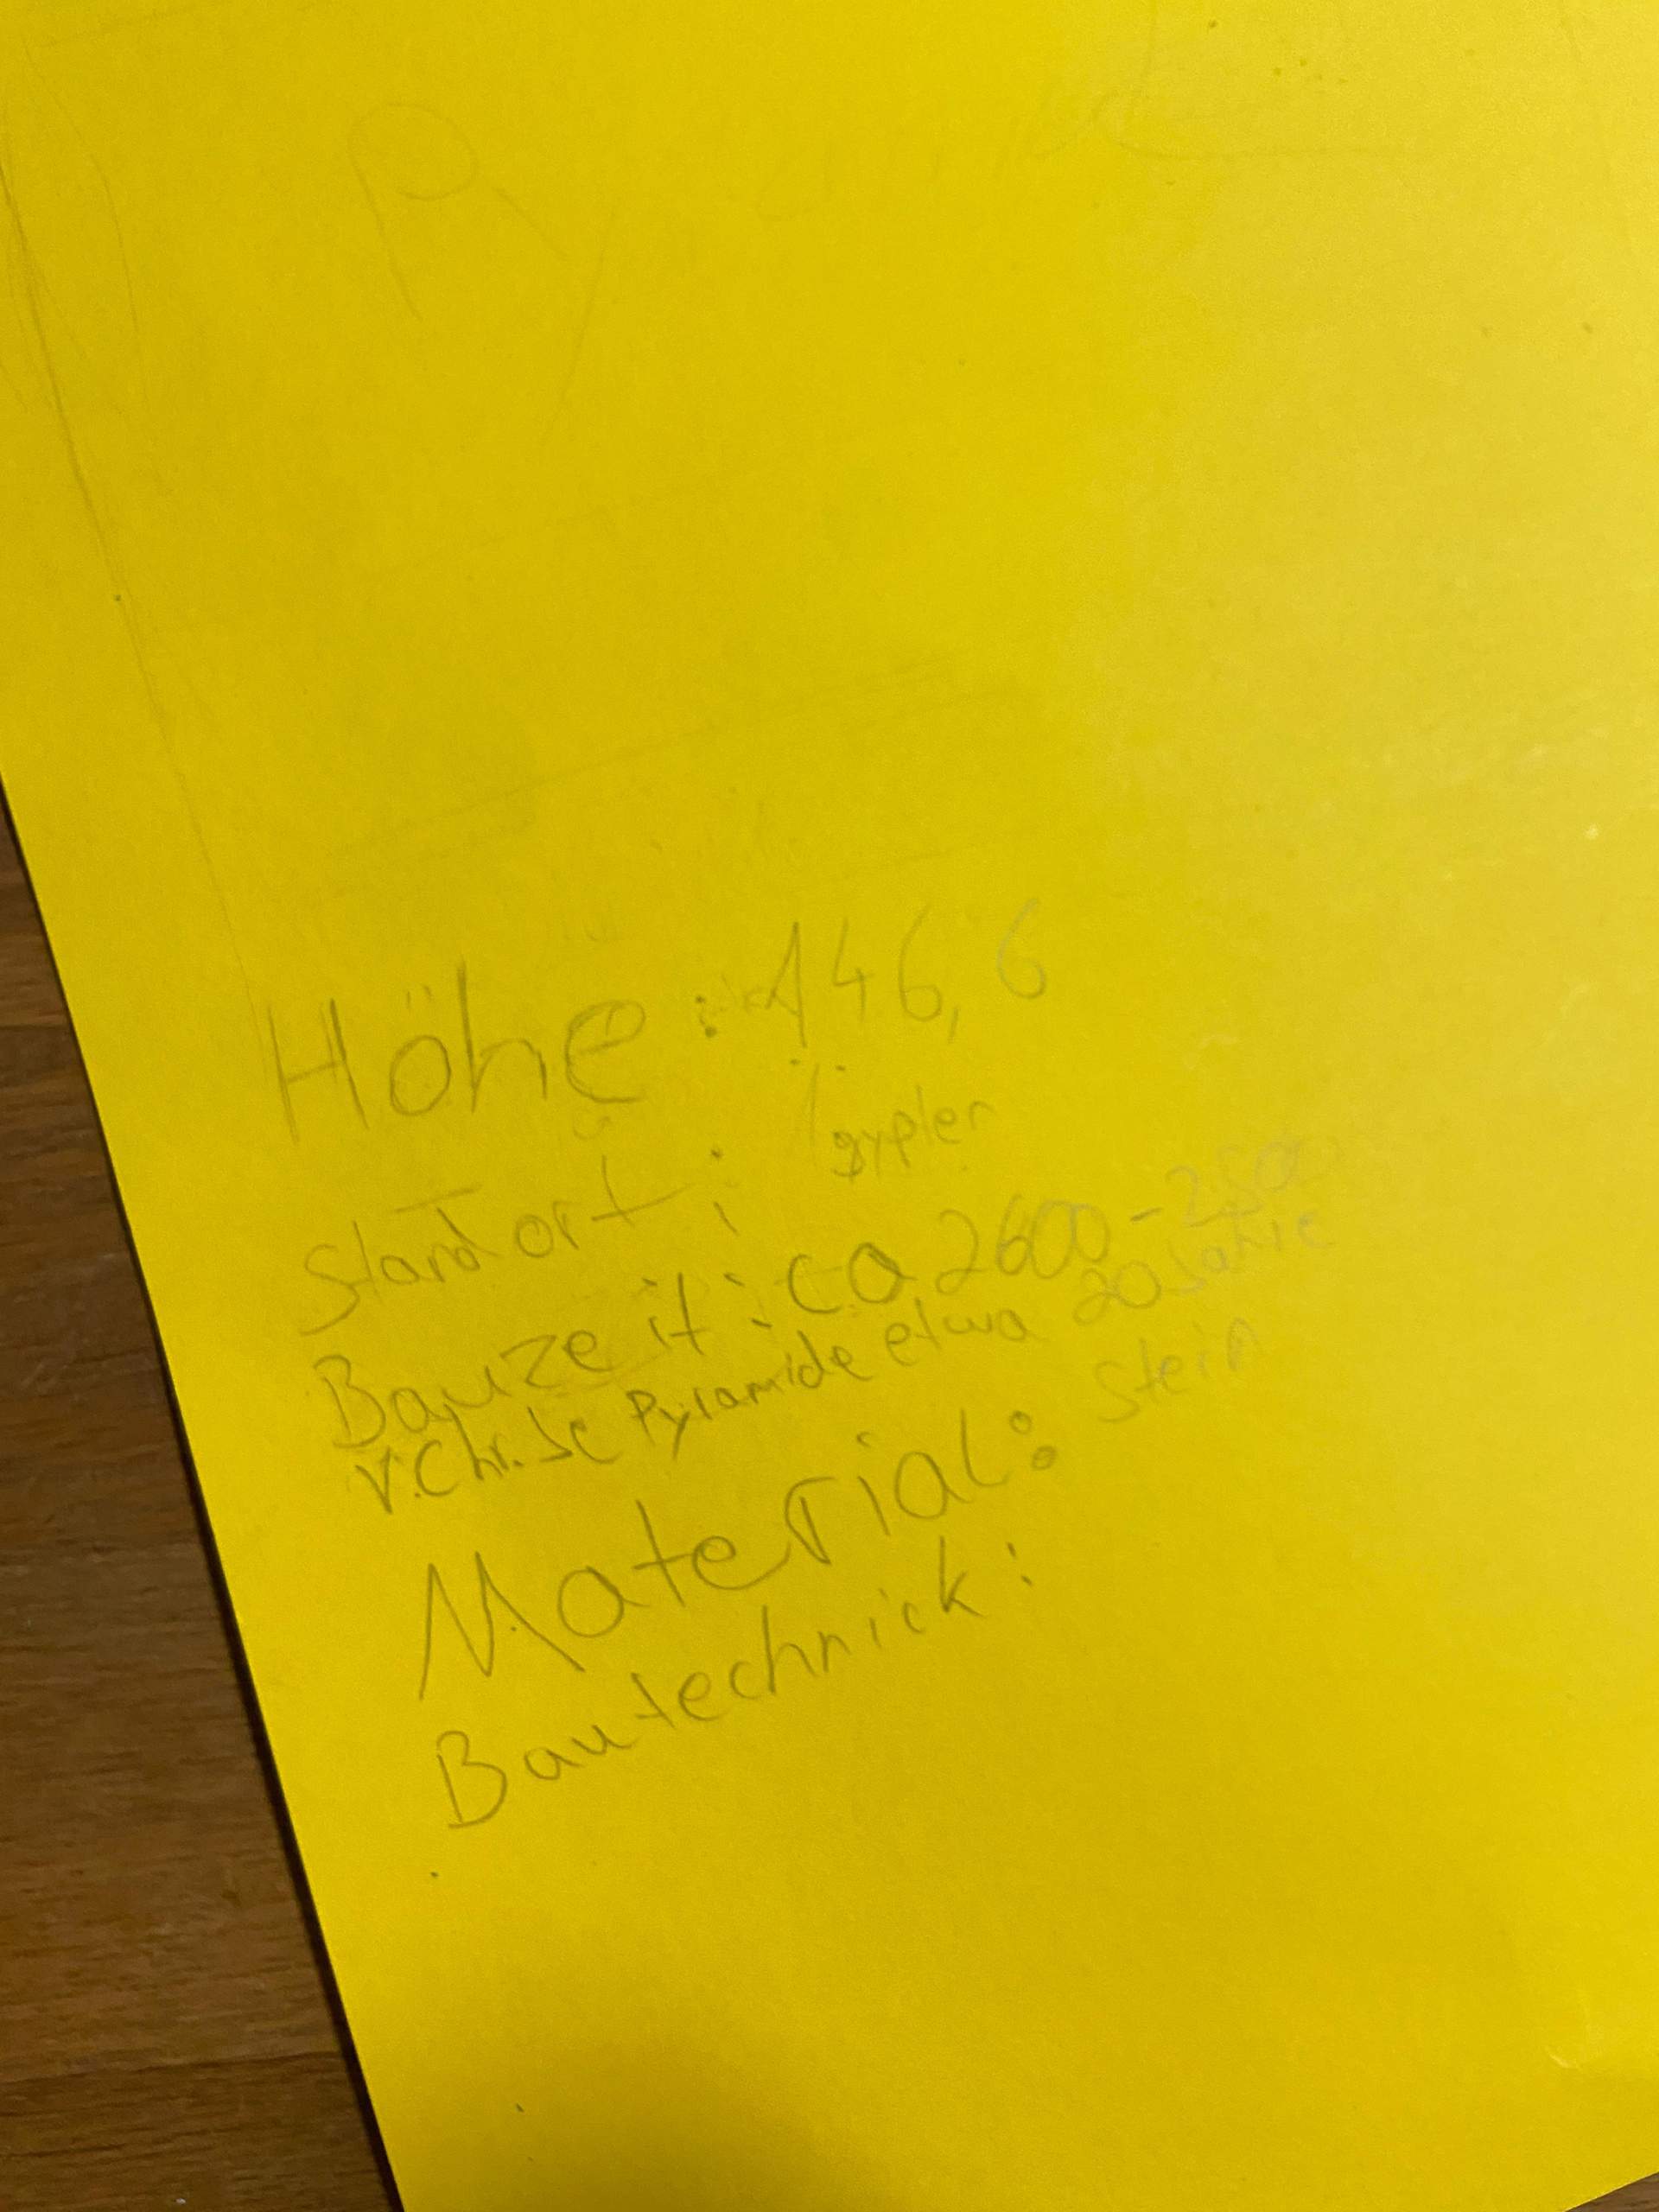 Py
Höhe: 146,6
Standort: Ägypten
Bauzeit: ca 2600-2500
v.Chr. Je Pyramide etwa 20 Jahre
Material: Stein
Bautechnick: